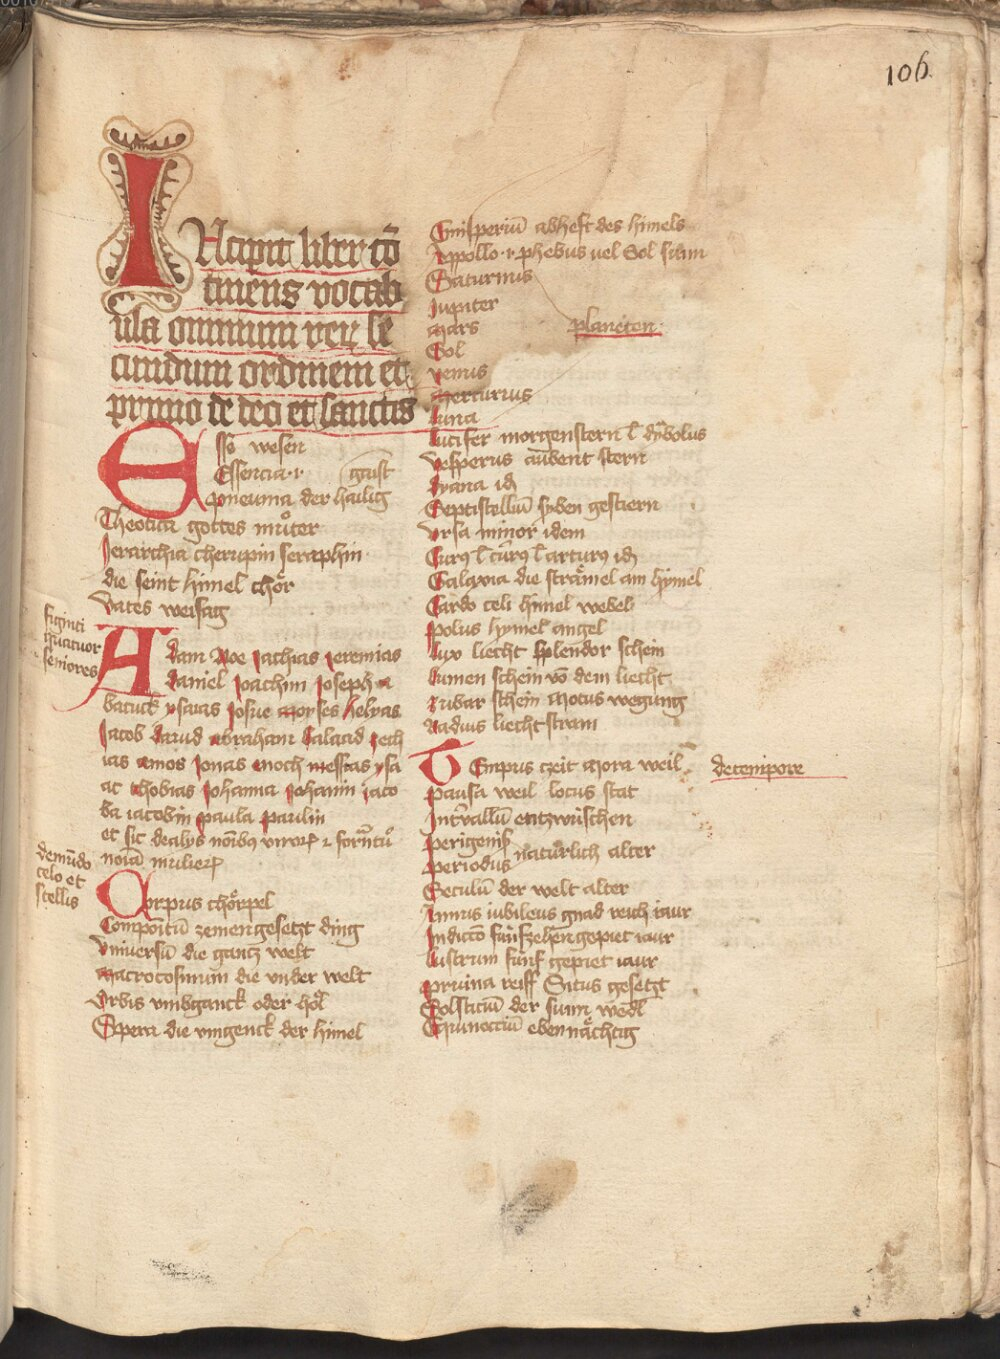 106
INcipit liber cō
tinens vocab
ula omnium rerꝝ se
cundum ordinem et
primo de deo et sanctis
Esse wesen
Essencia ·i· gaist
pneuma der hailig
Theotica gottes muͦter
Jerarchia cherupin seraphin
die seint himel choͤr
Vates weisag
figinti
quatuor
seniores
Adam Noe Zachias Jeremias
Daniel Joachim Joseph a
bacuck ysaias Josue Moyses helyas
Jacob Dauid abraham Galaad Zech
ias amos Jonas enoch messias ysa
ac thobias Johanna Johann iaco
ba iacobin paula paulin
et sic de alys nōibꝰ viroꝝ
noīa mulieꝝ
de mūdo
celo et
stellis
Corpus choͤrpel
Compoītū zemengesetzt ding
Vniuersū die gantz welt
Macrocosmum die vnder welt
Orbis vmbganck oder hoͤl
Spera die vmgenck der himel
Emisperiū abheft des himels
Appollo ·i· phebus uel Sol sunn
Saturnus
Jupiter
Mars
planeten
Sol
Venus
Mercurius
Luna
Lucifer morgenstern ł dyabolus
Vesperus aubent stern
Dyana id
Septistelliū syben gestiern
Vrsa minor idem
Curꝰ ł cūrꝰ ł arturꝰ id
Galaxia die straͤmel am hymel
Cardo celi himel webel
Polus hymel angel
Lux liecht Splendor schein
Lumen schein võ dem liecht
Jubar schein Motus wegung
Radius liecht stram
Tempus czeit Mora weil
de tempore
Pausa weil locus stat
Interuallū entzwischen
Perigenis
Periodus natuͤrlich alter
Seculū der welt alter
Annus iubileus gnad reich iaur
Indictō fuͤnfzehen gepiet iaur
Lustrum fuͤnf gepiet iaur
Pruina reiff Situs gesetzt
Solsticiū der sunn wendl
Equinoctiū eben naͤchtig